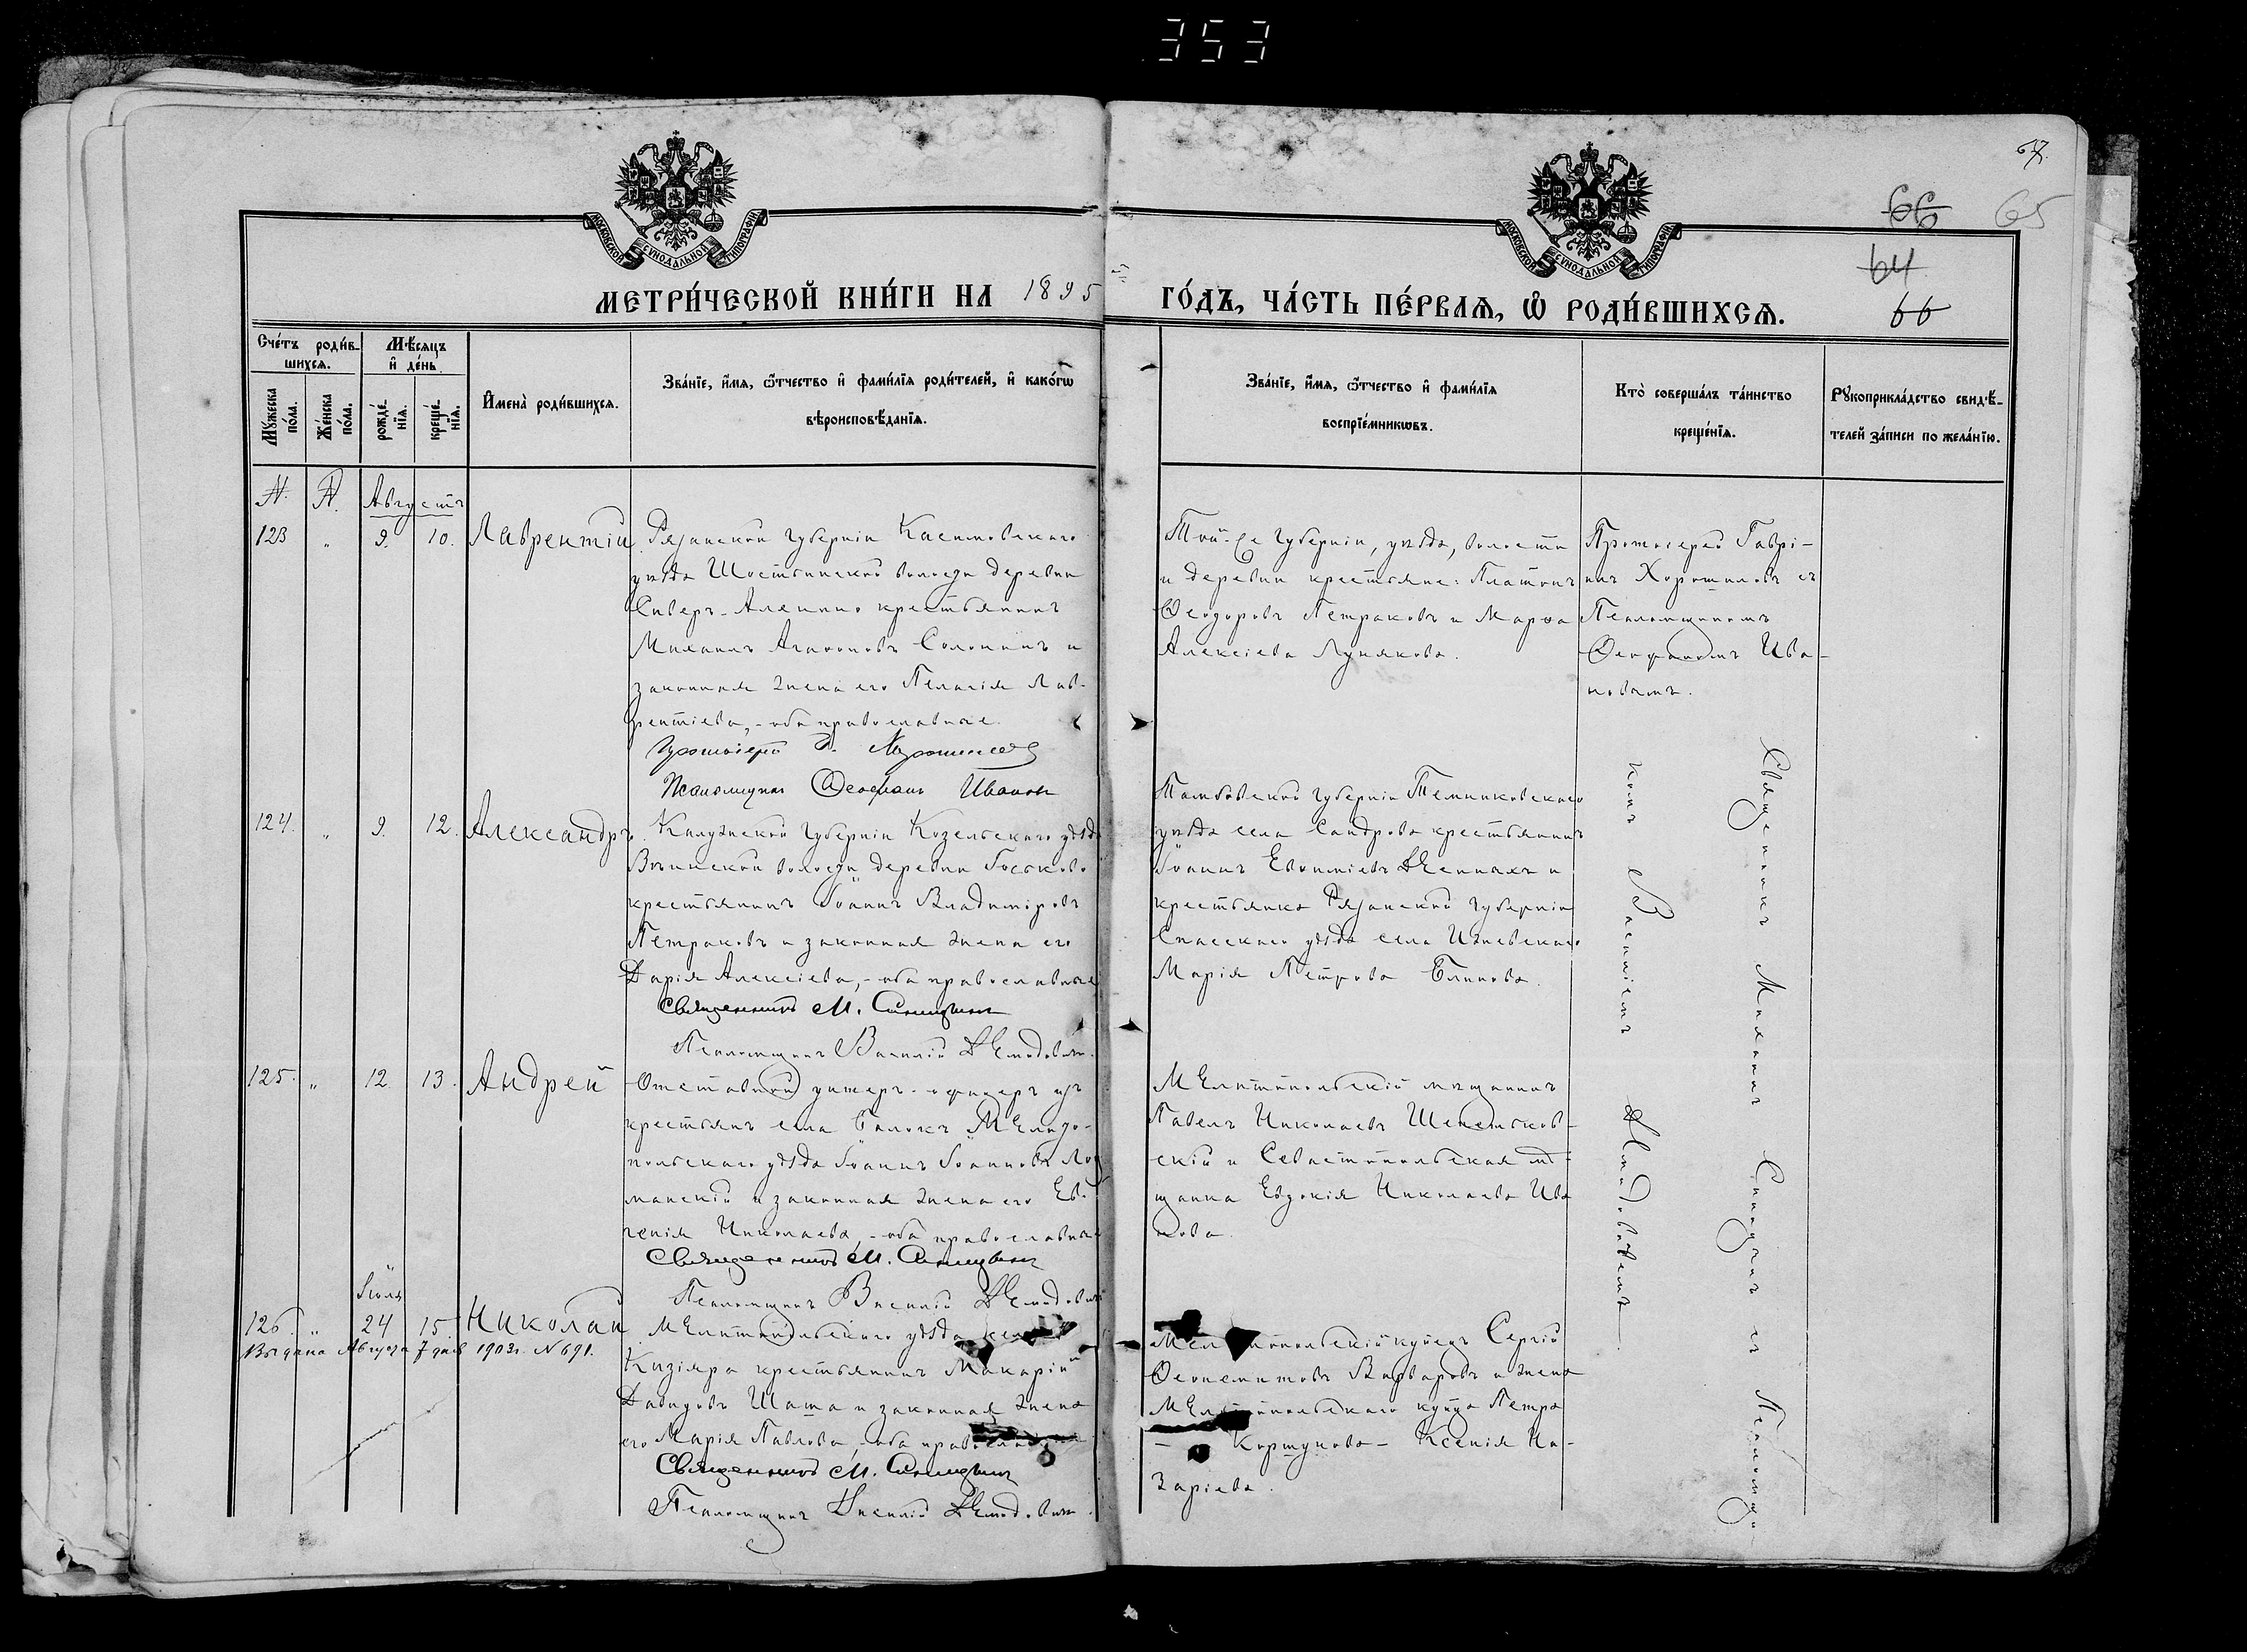 353
67.
66 65
64
66
МОСКОВСКОЙ СУНОДАЛЬНОЙ ТИПОГРАФІИ
МОСКОВСКОЙ СУНОДАЛЬНОЙ ТИПОГРАФІИ
МЕТРИ́ЧЕСКОЙ КНИ́ГИ НА 1895 ГО́ДЪ, ЧА́СТЬ ПЕ́РВАѦ, Ѡ҆ РОДИ́ВШИХСѦ.
Сче́тъ роди́в-
шихсѧ.
Мꙋ́жеска по́ла.
Же́нска по́ла.
Мѣ́сѧцъ и҆ де́нь
рожде́-нїѧ.
креще́-нїѧ.
И҆мена̀ роди́вшихсѧ.
Зва́нїе, и҆́мѧ, ѻ҆́тчество и҆ фами́лїѧ роди́телей, и҆ како́гѡ
вѣроисповѣ́данїѧ.
Зва́нїе, и҆́мѧ, ѻ҆́тчество и҆ фами́лїѧ
воспрїе́мникѡвъ.
Кто̀ соверша́лъ та́инство
креще́нїѧ.
Рꙋкоприкла́дство свидѣ́-
телей за́писи по жела́нїю.
N. N. Августъ
123 " 9. 10. Лаврентій
Рязанской губерніи Касимовскаго
уѣзда Шостьинской волости деревни
Сивер-Алёнино крестьянинъ
Михаилъ Агаѳоновъ Солонинъ и
законная жена его Пелагія Лав-
рентіева, - оба православные.
Протоіерей Г. Хорошиловъ
Псаломщикъ Ѳеофанъ Ивановъ
Той-же губерніи, уѣзда, волости
и деревни крестьяне: Платонъ
Ѳеодоровъ Петраковъ и Марѳа
Алексіева Лунякова.
Протоіерей Гаврі-
илъ Хорошиловъ съ
Псаломщикомъ
Ѳеофаномъ Ива-
новымъ.
124. " 9. 12. Александръ
Калужской губерніи Козельскаго уѣзда
волости деревни
крестьянинъ Іоаннъ Владиміровъ
Петраковъ и законная жена его
Дарія Алексіева, - оба православные
Священникъ М. Синицынъ
Псаломщикъ Василій
Тамбовской губерніи Темниковскаго
уѣзда села крестьянинъ
Іоаннъ Евѳиміевъ и
крестьянка Рязанской губерніи
Спасскаго уѣзда села Ижевскаго
Марія Петрова Блинова.
Священникъ Михаилъ Синицынъ съ Псаломщи-
комъ Василіемъ
125. " 12. 13. Андрей
Отставной унтеръ-офицеръ изъ
крестьянъ села Балокъ Мелито-
польскаго уѣзда Іоаннъ Іоанновъ
манскій и законная жена его Ев-
генія Николаева, - оба православные
Священникъ М. Синицынъ
Псаломщикъ Василій
Мелитопольскій мѣщанинъ
Павелъ Николаевъ
скій и Севастопольская мѣ-
щанка Евдокія Николаева Ива
нова.
Іюля
126. " 24 15. Николай
Выдана Августа 7 дня 1903 г. N 691.
Мелитопольскаго уѣзда
Кизіяра крестьянинъ Макарій
Давидовъ Шаша и законная жена
его Марія Павлова, - оба православные
Священникъ М. Синицынъ
Псаломщикъ Василій
Мелитопольскій купецъ Сергій
Ѳеопемптовъ Варваровъ и жена
Мелитопольскаго купца Петра
Коршунова - Ксенія На-
заріева.